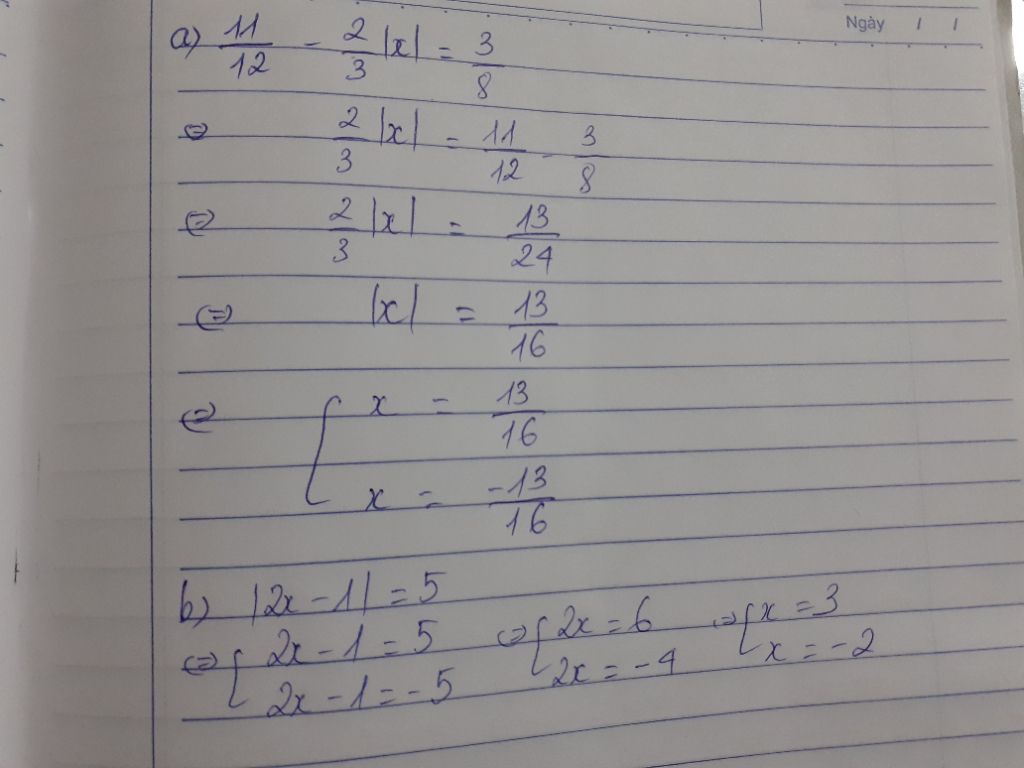 Ngày / /
a) 11/12 - 2/3 |x| = 3/8
⇔ 2/3 |x| = 11/12 - 3/8
⇔ 2/3 |x| = 13/24
⇔ |x| = 13/16
⇔ [ x = 13/16
x = -13/16
b) |2x - 1| = 5
⇔ [ 2x - 1 = 5 ⇔ [ 2x = 6 ⇔ [ x = 3
2x - 1 = -5 2x = -4 x = -2